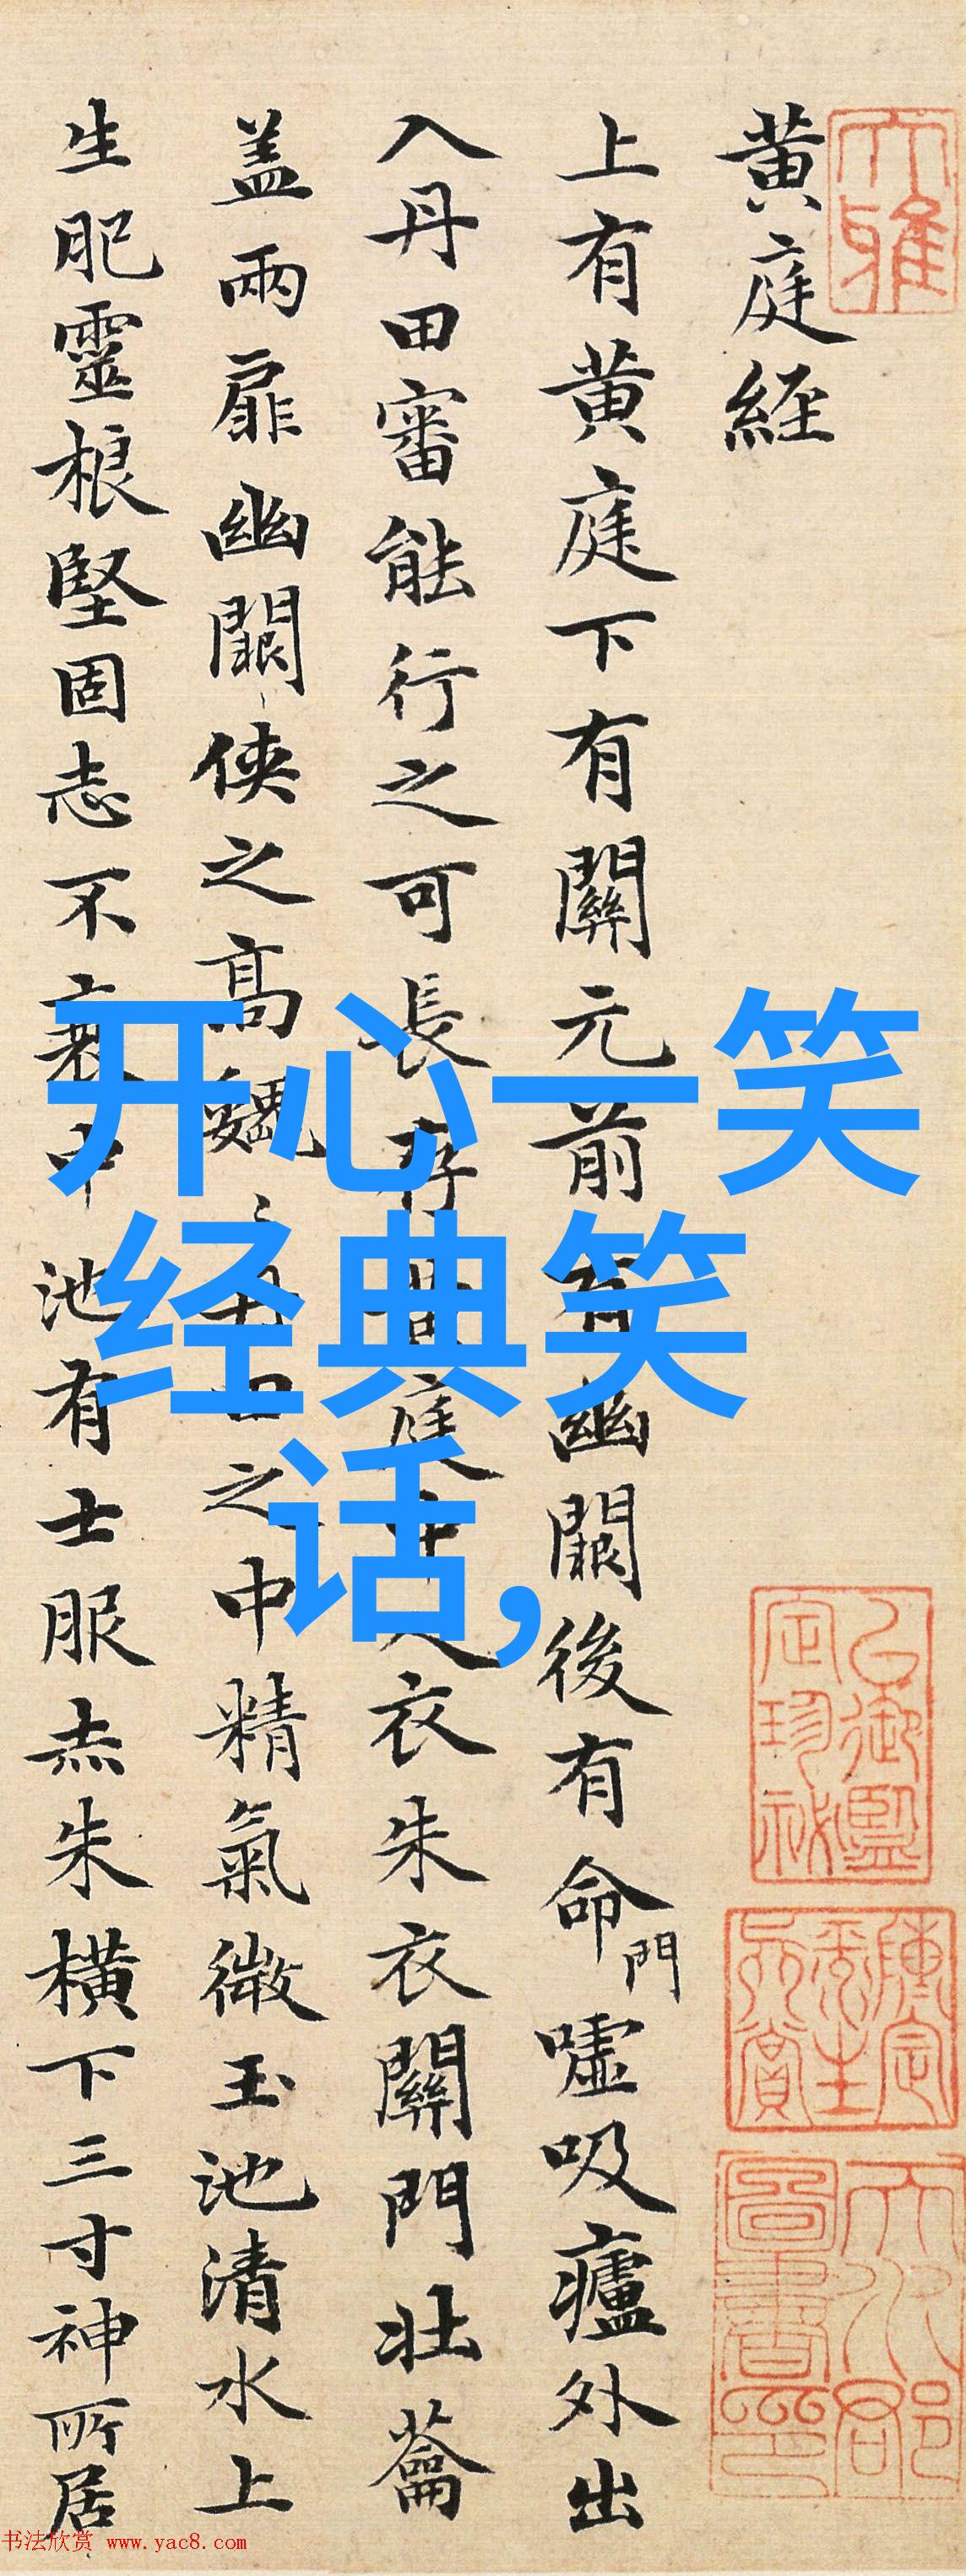 大雅
黄庭経
上有黄庭下有關元前有幽闕後有命門嘘吸廬外出
入丹田審能行之可長存黄庭中人衣朱衣關門壮籥
盖兩扉幽闕侠之高巍巍丹田之中精氣微玉池清水上
生肥靈根堅固志不衰中池有士服赤朱横下三寸神所居
开心一笑
经典笑
话,
书法欣赏 www.yac8.com